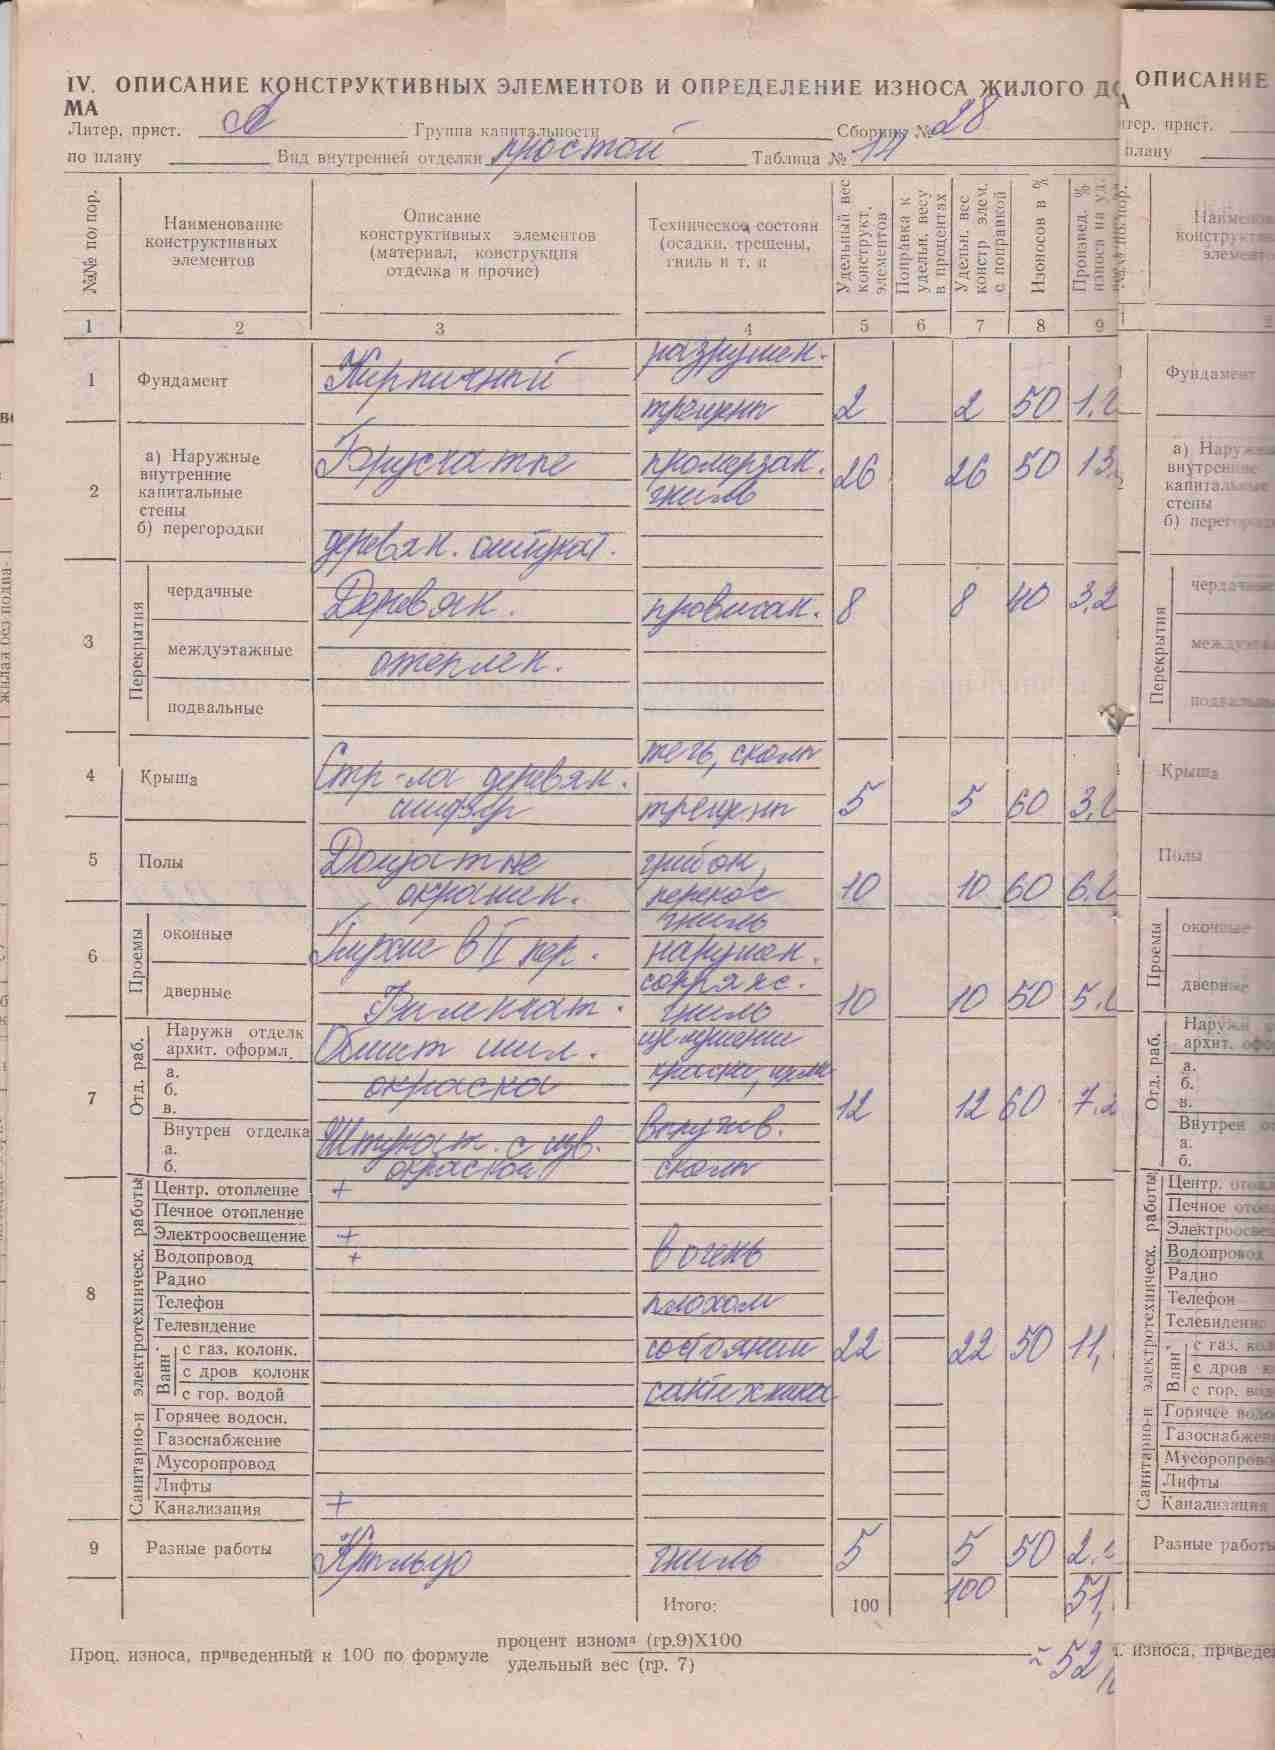 IV. ОПИСАНИЕ КОНСТРУКТИВНЫХ ЭЛЕМЕНТОВ И ОПРЕДЕЛЕНИЕ ИЗНОСА ЖИЛОГО ДО
МА
Литер. прист. А Группа капитальности Сборник № 28
по плану Вид внутренней отделки простой Таблица № 14
№№ по пор.
Наименование конструктивных элементов
Описание конструктивных элементов (материал, конструкция отделка и прочие)
Техническое состоян (осадки, трещены, гниль и т. п
Удельный вес конструкт. элементов
Поправка к удельн. весу в процентах
Удельн. вес констр элем. с поправкой
Изоносов в %
Произвед. % износа на уд.
1 2 3 4 5 6 7 8 9
1 Фундамент Кирпичный разрушен. трещены 2 2 50 1.0
2 а) Наружные внутренние капитальные стены Брусчатые промерзан. гниль 26 26 50 13
б) перегородки деревян. оштукат.
3 Перекрытия
чердачные Деревян. провисан. 8 8 40 3.2
междуэтажные отеплен.
подвальные
4 Крыша Стр-ла деревян. шифер течь, сколы трещены 5 5 60 3.0
5 Полы Дощатые окрашен. грибок, перекос гниль 10 10 60 6.0
6 Проемы
оконные Глухие в II пер. нарушен. сопряж.
дверные Филенчат. гниль 10 10 50 5.0
7 Отд. раб.
Наружн отделк архит. оформл. Обшит шил. шелушение
а. окраска краски, щели
б. 12 12 60 7.2
в.
Внутрен отделка Штукат. с изв. выпучив.
а. окраской сколы
б.
8 Санитарно-и электротехническ. работы
Центр. отопление +
Печное отопление
Электроосвещение +
Водопровод + в очень
Радио
Телефон плохом
Телевидение
Ванн
с газ. колонк. состоянии 22 22 50 11,
с дров колонк
с гор. водой сантехника
Горячее водосн.
Газоснабжение
Мусоропровод
Лифты
Канализация +
9 Разные работы Крыльцо гниль 5 5 50 2.
Итого: 100 100 51,
Проц. износа, приведенный к 100 по формуле процент изнома (гр.9)X100
удельный вес (гр. 7)
~ 52
ОПИСАНИЕ
А
итер. прист.
плану
Фундамент
а) Наружны
внутренние
капитальные
стены
б) перегородк
Перекрытия
чердачные
междуэтажн
подвальны
Крыша
Полы
Проемы
оконные
дверные
Отд. раб.
Наружн
архит. офор
а.
б.
в.
Внутрен от
а.
б.
Санитарно-и электротехническ. работы
Центр. отопл
Печное отоп
Электроосвещ
Водопровод
Радио
Телефон
Телевидение
Ванн
с газ. кол
с дров к
с гор. вод
Горячее водо
Газоснабжен
Мусоропрово
Лифты
Канализация
Разные работы
. износа, приведен